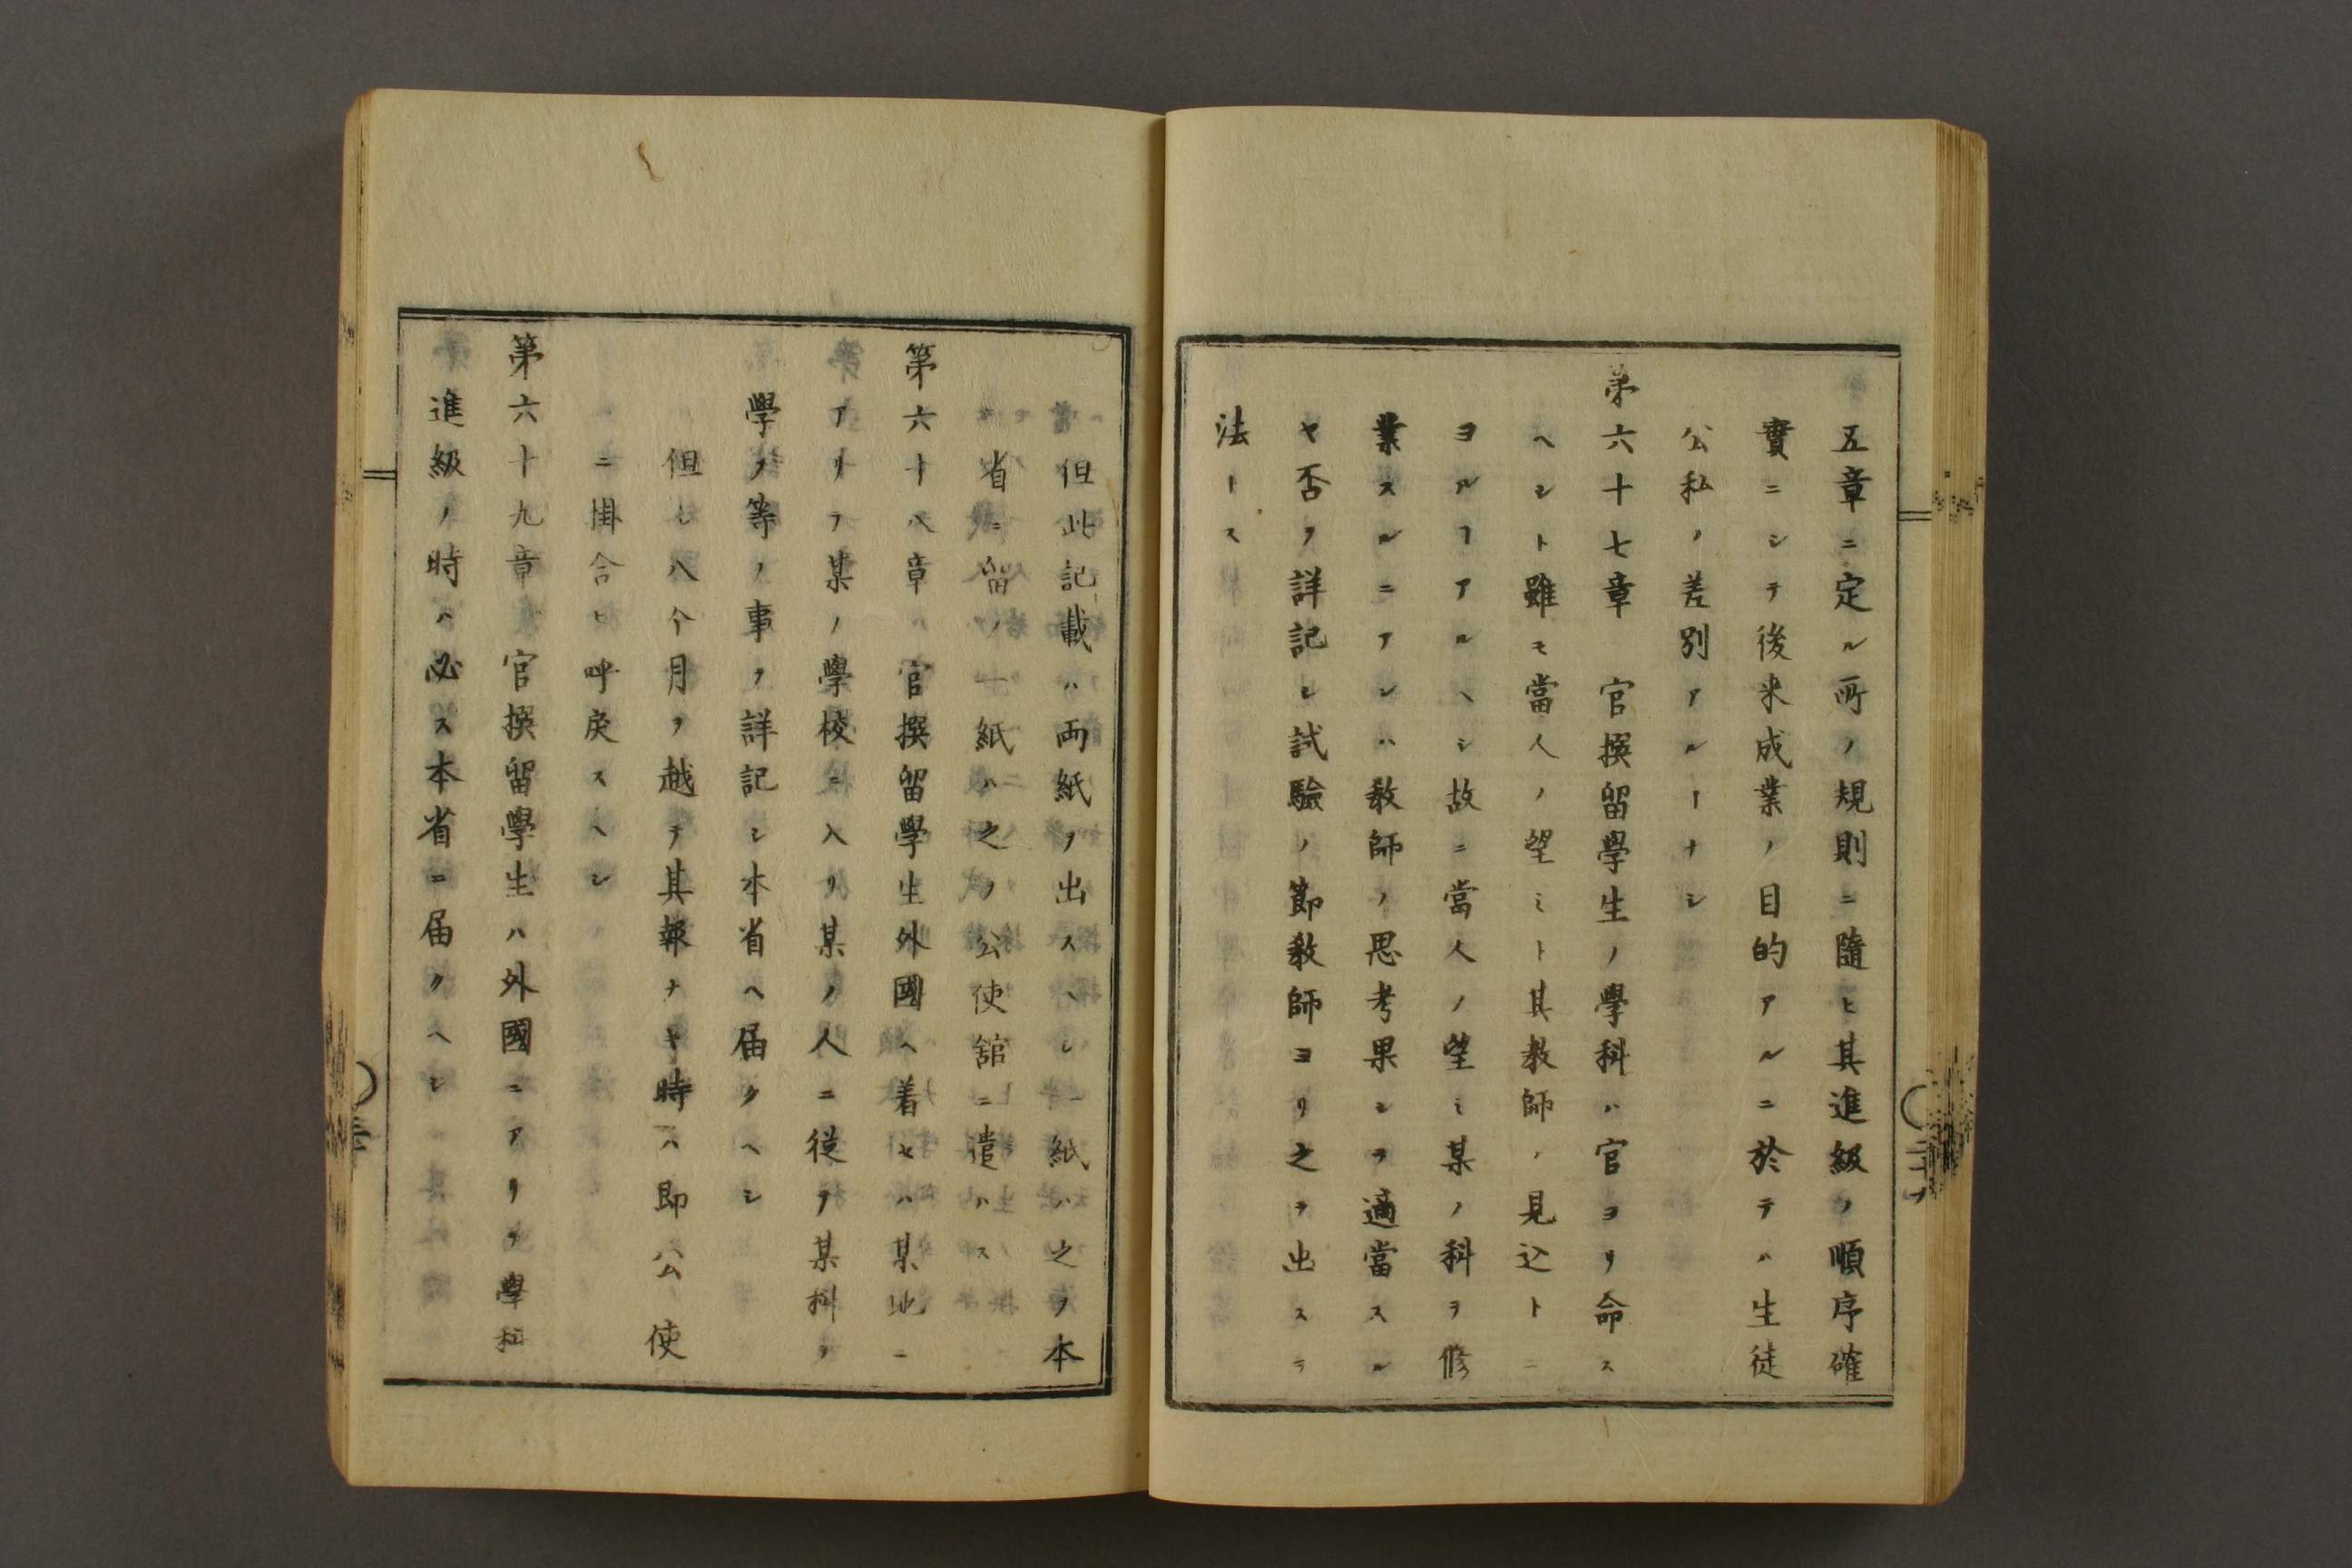 五章ニ定ル所ノ規則ニ隨ヒ其進級ノ順序確
實ニシテ後来成業ノ目的アルニ於テハ生徒
公私ノ差別アルーナシ
第六十七章　官撰留學生ノ學科ハ官ヨリ命ス
ヘシト雖モ當人ノ望ミト其教師ノ見込トニ
ヨルヿアルヘシ故ニ當人ノ望ミ某ノ科ヲ修
業スルニアレハ教師ノ思考果シテ適當スル
ヤ否ヲ詳記シ試驗ノ節教師ヨリ之ヲ出スヲ
法ース
但此記載ハ両紙ヲ出スヘシ一紙ハ之ヲ本
省ニ留ノ一紙ハ之ヲ公使舘ニ遣ハス
第六十八章　官撰留學生外國ヘ着セハ某地ニ
アリテ某ノ學校ニ入リ某ノ人ニ従テ某科ヲ
學フ等ノ事ヲ詳記シ本省ヘ届クヘシ
但シ八个月ヲ越テ其報ナキ時ハ即公使
ニ掛合ヒ呼戻スヘシ
第六十九章　官撰留學生ハ外國ニアリテ學科
進級ノ時ハ必ス本省ニ届クヘシ